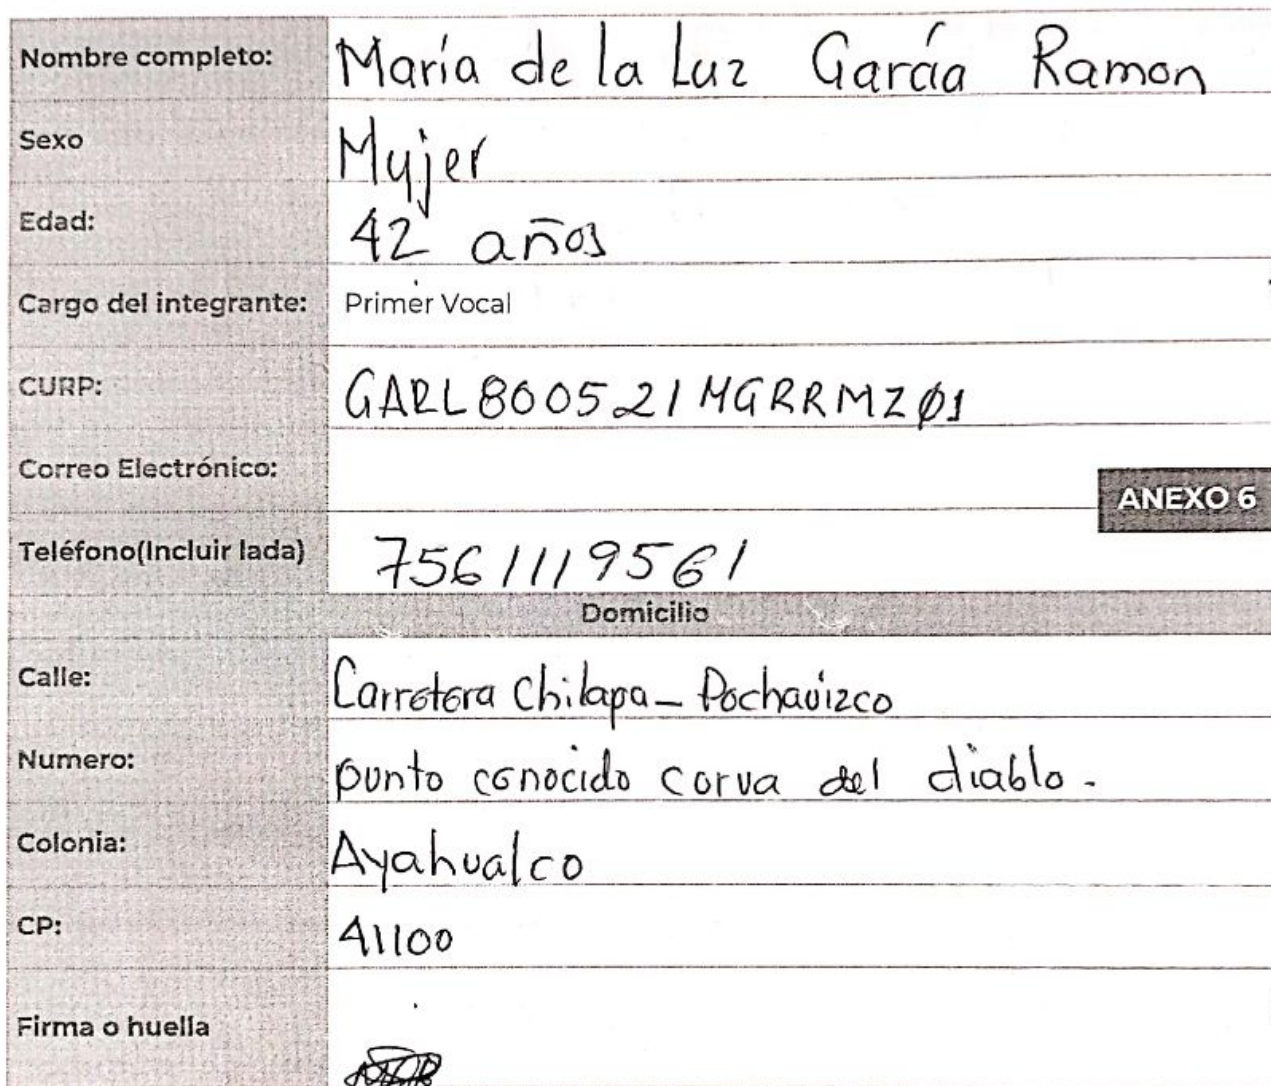 Nombre completo: María de la Luz García Ramon
Sexo Mujer
Edad: 42 años
Cargo del integrante: Primer Vocal
CURP: GARL800521MGRRMZ01
Correo Electrónico:
ANEXO 6
Teléfono(Incluir lada) 7561119561
Domicilio
Calle: Carretera Chilapa - Pochahuizco
Numero: punto conocido corva del diablo.
Colonia: Ayahualco
CP: 41100
Firma o huella